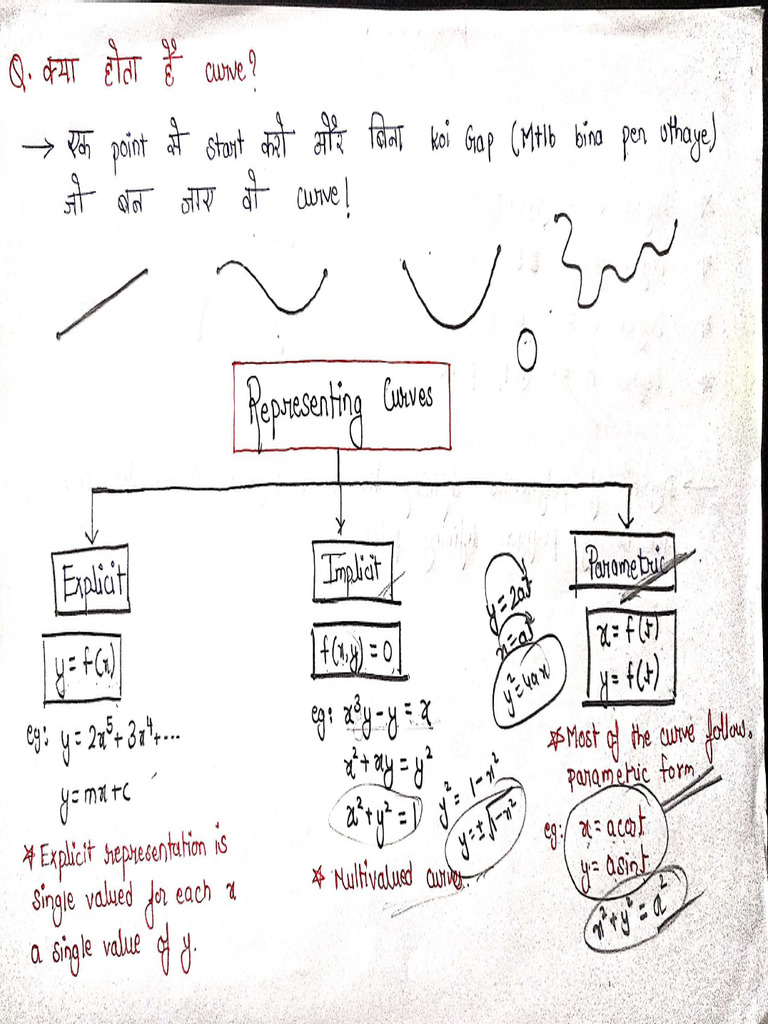 Q. क्या होता है curve?
→ एक point से start करो और बिना koi Gap (Mtlb bina pen uthaye)
जो बन जाए वो curve!
Representing Curves
Explicit
y = f(x)
eg: y = 2x⁵ + 3x⁴ + ...
y = mx + c
* Explicit representation is
single valued for each x
a single value of y.
Implicit
f(x,y) = 0
eg: x³y - y = x
x² + xy = y²
x² + y² = 1
y² = 1 - x²
y = ±√1-x²
* Multivalued curves.
y = 2at
x = at
y² = 4ax
Parametric
x = f(t)
y = f(t)
* Most of the curve follow.
parametric form
eg: x = a cost
y = a sint
x² + y² = a²